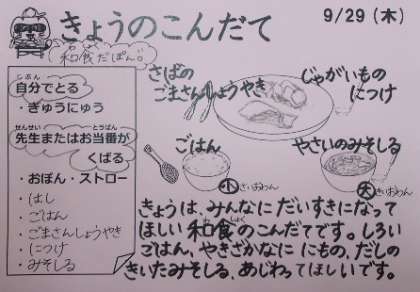 きょうのこんだて
9/29(木)
和食だぽん。
自分でとる
・ぎゅうにゅう
先生またはお当番が
くばる
・おぼん・ストロー
・はし
・ごはん
・ごまさんしょうやき
・につけ
・みそしる
さばの
ごまさんしょうやき
じゃがいもの
につけ
ごはん
小 ちいさいおわん
やさいのみそしる
大 おおきいおわん
きょうは、みんなにだいすきになって
ほしい和食のこんだてです。しろい
ごはん、やきざかなににもの、だしの
きいたみそしる、あじわってほしいです。